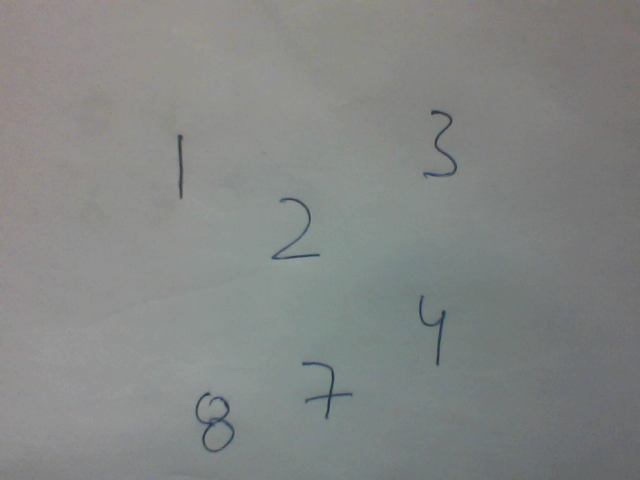 1
3
2
4
7
8